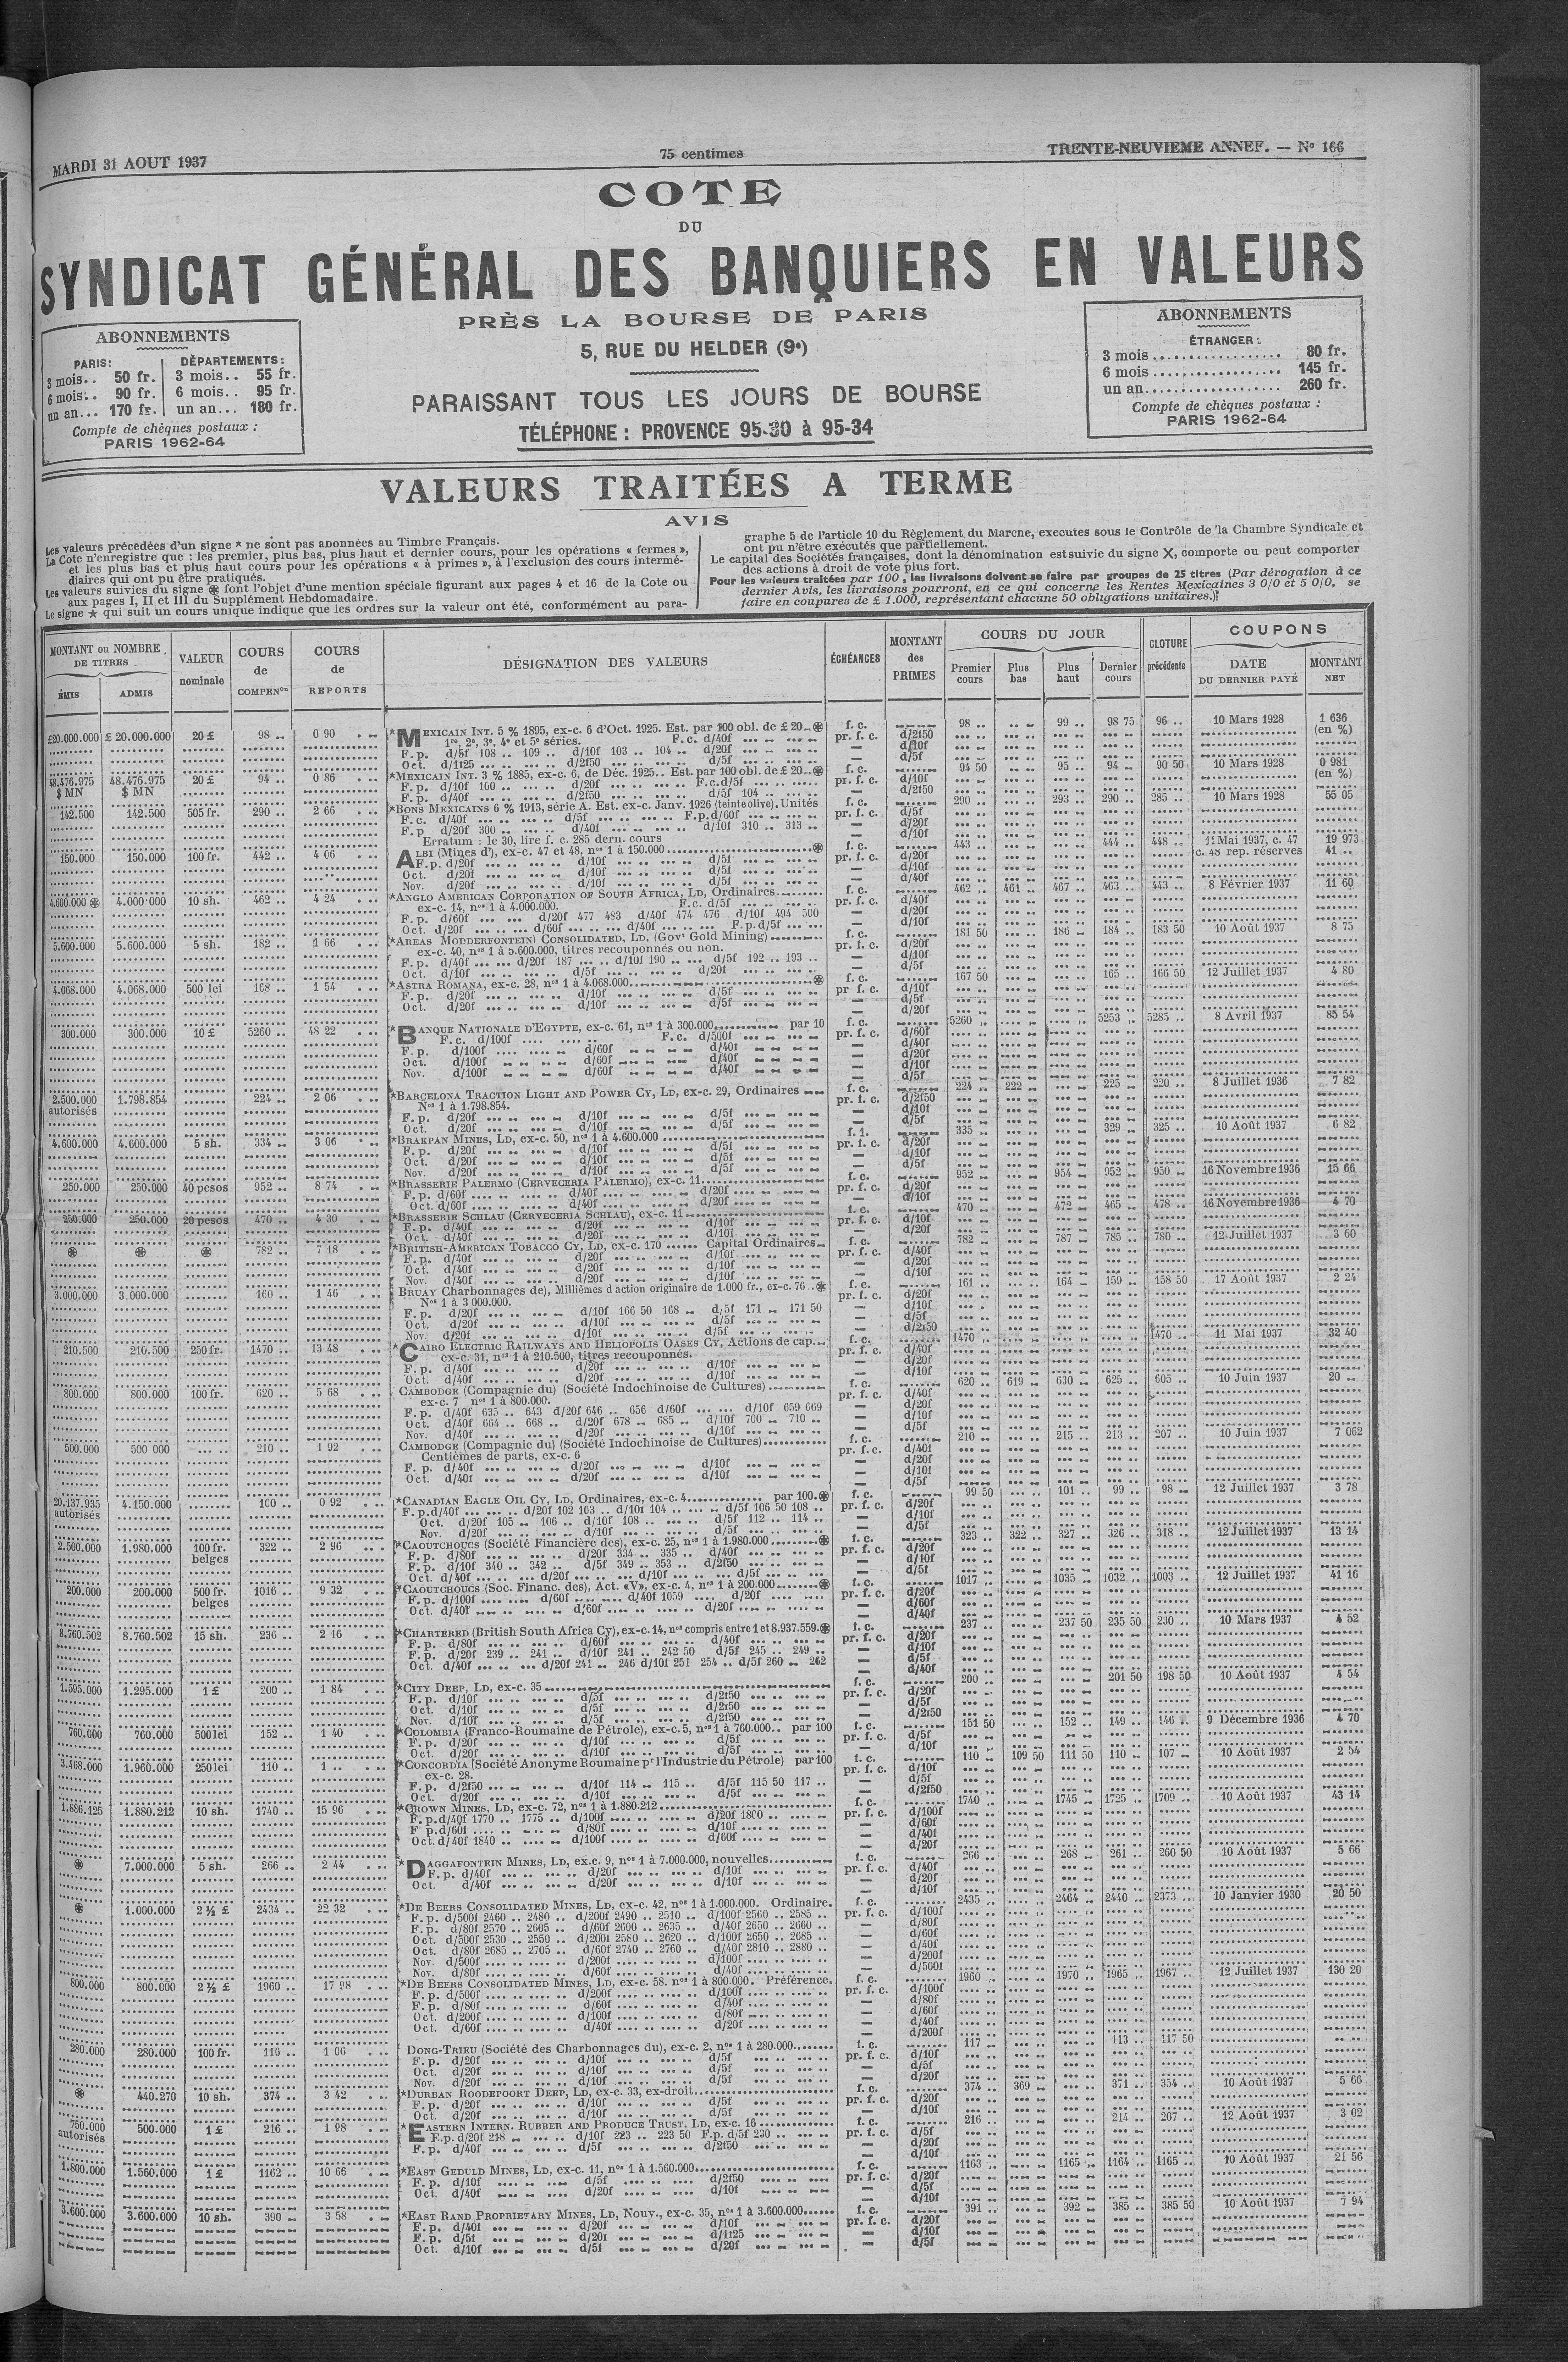 MARDI 31 AOUT 1937
75 centimes
TRENTE-NEUVIEME ANNEF. — No 166
COTE
DU
SYNDICAT GÉNÉRAL DES BANQUIERS EN VALEURS
PRÈS LA BOURSE DE PARIS
5, RUE DU HELDER (9e)
PARAISSANT TOUS LES JOURS DE BOURSE
TÉLÉPHONE : PROVENCE 95-30 à 95-34
ABONNEMENTS
PARIS: DÉPARTEMENTS:
3 mois.. 50 fr. 3 mois.. 55 fr.
6 mois.. 90 fr. 6 mois.. 95 fr.
un an... 170 fr. un an... 180 fr.
Compte de chèques postaux :
PARIS 1962-64
ABONNEMENTS
ÉTRANGER:
3 mois.................. 80 fr.
6 mois.................. 145 fr.
un an................... 260 fr.
Compte de chèques postaux :
PARIS 1962-64
VALEURS TRAITÉES A TERME
AVIS
Les valeurs précédées d'un signe * ne sont pas abonnées au Timbre Français.
La Cote n'enregistre que : les premier, plus bas, plus haut et dernier cours, pour les opérations « fermes »,
et les plus bas et plus haut cours pour les opérations « à primes », à l'exclusion des cours intermé-
diaires qui ont pu être pratiqués.
Les valeurs suivies du signe ⊛ font l'objet d'une mention spéciale figurant aux pages 4 et 16 de la Cote ou
aux pages I, II et III du Supplément Hebdomadaire.
Le signe ★ qui suit un cours unique indique que les ordres sur la valeur ont été, conformément au para-
graphe 5 de l'article 10 du Règlement du Marche, executes sous le Contrôle de la Chambre Syndicale et
ont pu n'être exécutés que partiellement.
Le capital des Sociétés françaises, dont la dénomination est suivie du signe X, comporte ou peut comporter
des actions à droit de vote plus fort.
Pour les valeurs traitées par 100, les livraisons doivent se faire par groupes de 25 titres (Par dérogation à ce
dernier Avis, les livraisons pourront, en ce qui concerne les Rentes Mexicaines 3 0/0 et 5 0/0, se
faire en coupures de £ 1.000, représentant chacune 50 obligations unitaires.)
MONTANT ou NOMBRE DE TITRES
ÉMIS ADMIS
VALEUR nominale
COURS de COMPENon
COURS de REPORTS
DÉSIGNATION DES VALEURS
ÉCHÉANCES
MONTANT des PRIMES
COURS DU JOUR
Premier cours Plus bas Plus haut Dernier cours
CLOTURE précédente
COUPONS
DATE DU DERNIER PAYÉ
MONTANT NET
£20.000.000 £ 20.000.000 20 £ 98 .. 0 90 *MEXICAIN INT. 5 % 1895, ex-c. 6 d'Oct. 1925. Est. par 100 obl. de £ 20 ⊛ f. c. 98 .. 99 .. 98 75 96 .. 10 Mars 1928 1 636
1re, 2e, 3e, 4e et 5e séries. F.c. d/40f pr. f. c. d/2f50 (en %)
F. p. d/5f 108 .. 109 .. d/10f 103 .. 104 d/20f — d/10f
Oct. d/1f25 d/2f50 d/5f — d/5f
48.476.975 48.476.975 20 £ 94 .. 0 86 *MEXICAIN INT. 3 % 1885, ex-c. 6, de Déc. 1925.. Est. par 100 obl. de £ 20 ⊛ f. c. 94 50 95 .. 94 .. 90 50 10 Mars 1928 0 981
$ MN $ MN F. p. d/10f 100 .. d/20f F.c.d/5f pr. f. c. d/10f (en %)
F. p. d/40f d/2f50 d/5f 104 .. — d/2f50
142.500 142.500 505 fr. 290 .. 2 66 *BONS MEXICAINS 6 % 1913, série A. Est. ex-c. Janv. 1926 (teinte olive). Unités f. c. 290 .. 293 .. 290 .. 285 .. 10 Mars 1928 55 05
F. c. d/40f d/5f F.p.d/60f pr. f. c. d/5f
F. p d/20f 300 .. d/40f d/10f 310 .. 313 .. — d/20f
Erratum : le 30, lire f. c. 285 dern. cours — d/10f
150.000 150.000 100 fr. 442 .. 4 06 ALBI (Mines d'), ex-c. 47 et 48, nos 1 à 150.000 ⊛ f. c. 443 .. 444 .. 448 .. 11 Mai 1937, c. 47 19 973
F. p. d/20f d/10f d/5f pr. f. c. d/20f c. 48 rep. réserves 41 ..
Oct. d/20f d/10f d/5f — d/10f
Nov. d/20f d/10f d/5f — d/40f
4.600.000 ⊛ 4.000.000 10 sh. 462 .. 4 24 *ANGLO AMERICAN CORPORATION OF SOUTH AFRICA, LD, Ordinaires f. c. 462 .. 461 .. 467 .. 463 .. 443 .. 8 Février 1937 11 60
ex-c. 14, nos 1 à 4.000.000. F.c. d/5f pr. f. c. d/40f
F. p. d/60f d/20f 477 483 d/40f 474 476 d/10f 494 500 — d/20f
Oct. d/20f d/60f d/40f F.p.d/5f — d/10f
5.600.000 5.600.000 5 sh. 182 .. 1 66 *AREAS MODDERFONTEIN) CONSOLIDATED, LD. (Govt Gold Mining) f. c. 181 50 186 .. 184 .. 183 50 10 Août 1937 8 75
ex-c. 40, nos 1 à 5.600.000. titres recouponnés ou non. pr. f. c. d/20f
F. p. d/40f d/20f 187 .. d/10f 190 d/5f 192 .. 193 .. — d/10f
Oct. d/10f d/5f d/20f — d/5f
4.068.000 4.068.000 500 lei 168 .. 1 54 *ASTRA ROMANA, ex-c. 28, nos 1 à 4.068.000 ⊛ f. c. 167 50 165 .. 166 50 12 Juillet 1937 4 80
F. p. d/20f d/10f d/5f pr. f. c. d/10f
Oct. d/20f d/10f d/5f — d/5f
— d/20f
300.000 300.000 10 £ 5260 .. 48 22 *BANQUE NATIONALE D'EGYPTE, ex-c. 61, nos 1 à 300.000 par 10 f. c. 5260 .. 5253 .. 5285 .. 8 Avril 1937 85 54
F. c. d/100f F.c. d/500f pr. f. c. d/60f
F. p. d/100f d/60f d/40f — d/40f
Oct. d/100f d/60f d/40f — d/20f
Nov. d/100f d/60f d/40f — d/10f
— d/5f
2.500.000 1.798.854 224 .. 2 06 *BARCELONA TRACTION LIGHT AND POWER CY, LD, ex-c. 29, Ordinaires f. c. 224 .. 222 .. 225 .. 220 .. 8 Juillet 1936 7 82
autorisés Nos 1 à 1.798.854. pr. f. c. d/2f50
F. p. d/20f d/10f d/5f — d/10f
Oct. d/20f d/10f d/5f — d/5f
4.600.000 4.600.000 5 sh. 334 .. 3 06 *BRAKPAN MINES, LD, ex-c. 50, nos 1 à 4.600.000 f. 1. 335 .. 329 .. 325 .. 10 Août 1937 6 82
F. p. d/20f d/10f d/5f pr. f. c. d/20f
Oct. d/20f d/10f d/5f — d/10f
Nov. d/20f d/10f d/5f — d/5f
250.000 250.000 40 pesos 952 .. 8 74 *BRASSERIE PALERMO (CERVECERIA PALERMO), ex-c. 11 f. c. 952 .. 954 .. 952 .. 950 .. 16 Novembre 1936 15 66
F. p. d/60f d/40f d/20f pr. f. c. d/20f
Oct. d/60f d/40f d/20f — d/10f
250.000 250.000 20 pesos 470 .. 4 30 *BRASSERIE SCHLAU (CERVECERIA SCHLAU), ex-c. 11 f. c. 470 .. 472 .. 465 .. 478 .. 16 Novembre 1936 4 70
F. p. d/40f d/20f d/10f pr. f. c. d/10f
Oct. d/40f d/20f d/10f — d/20f
⊛ ⊛ ⊛ 782 .. 7 18 *BRITISH-AMERICAN TOBACCO CY, LD, ex-c. 170 ...... Capital Ordinaires f. c. 782 .. 787 .. 785 .. 780 .. 12 Juillet 1937 3 60
F. p. d/40f d/20f d/10f pr. f. c. d/40f
Oct. d/40f d/20f d/10f — d/20f
Nov. d/40f d/20f d/10f — d/10f
3.000.000 3.000.000 160 .. 1 46 BRUAY Charbonnages de), Millièmes d action originaire de 1.000 fr., ex-c. 76 ..⊛ f. c. 161 .. 164 .. 159 .. 158 50 17 Août 1937 2 24
Nos 1 à 3 000.000. pr. f. c. d/20f
F. p. d/20f d/10f 166 50 168 d/5f 171 171 50 — d/10f
Oct. d/20f d/10f d/5f — d/5f
Nov. d/20f d/10f d/5f — d/2f50
210.500 210.500 250 fr. 1470 .. 13 48 *CAIRO ELECTRIC RAILWAYS AND HELIOPOLIS OASES CY, Actions de cap. f. c. 1470 .. 1470 .. 11 Mai 1937 32 40
ex-c. 31, nos 1 à 210.500, titres recouponnés. pr. f. c. d/40f
F. p. d/40f d/20f d/10f — d/20f
Oct. d/40f d/20f d/10f — d/10f
800.000 800.000 100 fr. 620 .. 5 68 CAMBODGE (Compagnie du) (Société Indochinoise de Cultures) f. c. 620 .. 619 .. 630 .. 625 .. 605 .. 10 Juin 1937 20 ..
ex-c. 7 nos 1 à 800.000. pr. f. c. d/40f
F. p. d/40f 635 .. 643 d/20f 646 .. 656 d/60f d/10f 659 669 — d/20f
Oct. d/40f 664 .. 668 .. d/20f 678 .. 685 .. d/10f 700 .. 710 .. — d/10f
Nov. d/40f d/20f d/10f — d/5f
500.000 500 000 210 .. 1 92 CAMBODGE (Compagnie du) (Société Indochinoise de Cultures) f. c. 210 .. 215 .. 213 .. 207 .. 10 Juin 1937 7 062
Centièmes de parts, ex-c. 6 pr. f. c. d/40f
F. p. d/40f d/20f d/10f — d/20f
Oct. d/40f d/20f d/10f — d/10f
— d/5f
20.137.935 4.150.000 100 .. 0 92 *CANADIAN EAGLE OIL CY, LD, Ordinaires, ex-c. 4 par 100.⊛ f. c. 99 50 101 .. 99 .. 98 .. 12 Juillet 1937 3 78
autorisés F. p.d/40f d/20f 102 103 .. d/10f 104 .. d/5f 106 50 108 .. pr. f. c. d/20f
Oct. d/20f 105 106 .. d/10f 108 .. d/5f 112 .. 114 .. — d/10f
Nov. d/20f d/10f d/5f — d/5f
2.500.000 1.980.000 100 fr. 322 .. 2 96 *CAOUTCHOUCS (Société Financière des), ex-c. 25, nos 1 à 1.980.000 ⊛ f. c. 323 .. 322 .. 327 .. 326 .. 318 .. 12 Juillet 1937 13 14
belges F. p. d/80f d/20f 334 .. 335 .. d/40f pr. f. c. d/20f
F. p. d/10f 340 .. 342 .. d/5f 349 .. 353 .. d/2f50 — d/10f
Oct. d/40f d/20f d/10f d/5f — d/5f
200.000 200.000 500 fr. 1016 .. 9 32 *CAOUTCHOUCS (Soc. Financ. des), Act. «V», ex-c. 4, nos 1 à 200.000 ⊛ f. c. 1017 .. 1035 .. 1032 .. 1003 .. 12 Juillet 1937 41 16
belges F. p. d/100f d/60f d/40f 1059 d/20f pr. f. c. d/20f
Oct. d/40f d/60f d/20f — d/60f
— d/40f
8.760.502 8.760.502 15 sh. 236 .. 2 16 *CHARTERED (British South Africa Cy), ex-c. 14, nos compris entre 1 et 8.937.559.⊛ f. c. 237 .. 237 50 235 50 230 .. 10 Mars 1937 4 52
F. p. d/80f d/60f d/40f pr. f. c. d/20f
F. p. d/20f 239 .. 241 .. d/10f 241 .. 242 50 d/5f 245 .. 249 .. — d/10f
Oct. d/40f d/20f 241 246 d/10f 251 254 .. d/5f 260 262 — d/5f
— d/40f
1.595.000 1.295.000 1 £ 200 .. 1 84 *CITY DEEP, LD, ex-c. 35 f. c. 200 .. 201 50 198 50 10 Août 1937 4 54
F. p. d/10f d/5f d/2f50 pr. f. c. d/20f
Oct. d/10f d/5f d/2f50 — d/5f
Nov. d/10f d/5f d/2f50 — d/2f50
760.000 760.000 500 lei 152 .. 1 40 *COLOMBIA (Franco-Roumaine de Pétrole), ex-c. 5, nos 1 à 760.000.. par 100 f. c. 151 50 152 .. 149 .. 146 .. 9 Décembre 1936 4 70
F. p. d/20f d/10f d/5f pr. f. c. d/5f
Oct. d/20f d/10f d/5f — d/10f
3.468.000 1.960.000 250 lei 110 .. 1 .. *CONCORDIA (Société Anonyme Roumaine pr l'Industrie du Pétrole) par 100 f. c. 110 .. 109 50 111 50 110 .. 107 .. 10 Août 1937 2 54
ex-c. 28. pr. f. c. d/10f
F. p. d/2f50 d/10f 114 115 .. d/5f 115 50 117 .. — d/5f
Oct. d/20f d/10f d/5f — d/2f50
1.886.125 1.880.212 10 sh. 1740 .. 15 96 *CROWN MINES, LD, ex-c. 72, nos 1 à 1.880.212 f. c. 1740 .. 1745 .. 1725 .. 1709 .. 10 Août 1937 43 14
F. p.d/40f 1770 .. 1775 .. d/100f d/20f 1800 .. pr. f. c. d/100f
F p.d/60f d/80f d/10f — d/60f
Oct. d/40f 1840 .. d/100f d/60f — d/40f
— d/20f
⊛ 7.000.000 5 sh. 266 .. 2 44 *DAGGAFONTEIN MINES, LD, ex.c. 9, nos 1 à 7.000.000, nouvelles f. c. 266 .. 268 .. 261 .. 260 50 10 Août 1937 5 66
F. p. d/40f d/20f d/10f pr. f. c. d/40f
Oct. d/40f d/20f d/10f — d/20f
— d/10f
⊛ 1.000.000 2 ½ £ 2434 .. 22 32 *DE BEERS CONSOLIDATED MINES, LD, ex-c. 42. nos 1 à 1.000.000. Ordinaire. f. c. 2435 .. 2464 .. 2440 .. 2373 .. 10 Janvier 1930 20 50
F. p. d/500f 2460 .. 2480 .. d/200f 2490 .. 2510 .. d/100f 2560 .. 2585 .. pr. f. c. d/100f
F. p. d/80f 2570 .. 2605 .. d/60f 2600 .. 2635 .. d/40f 2650 .. 2660 .. — d/80f
Oct. d/500f 2530 .. 2550 .. d/200f 2580 .. 2620 .. d/100f 2650 .. 2685 .. — d/60f
Oct. d/80f 2685 .. 2705 .. d/60f 2740 .. 2760 .. d/40f 2810 .. 2880 .. — d/40f
Nov. d/500f d/200f d/100f — d/200f
Nov. d/80f d/60f d/40f — d/500f
800.000 800.000 2 ½ £ 1960 .. 17 98 *DE BEERS CONSOLIDATED MINES, LD, ex-c. 58. nos 1 à 800.000. Préférence. f. c. 1960 .. 1970 .. 1965 .. 1967 .. 12 Juillet 1937 130 20
F. p. d/500f d/200f d/100f pr. f. c. d/100f
F. p. d/80f d/60f d/40f — d/80f
Oct. d/200f d/100f d/80f — d/60f
Oct. d/60f d/40f d/20f — d/40f
— d/200f
280.000 280.000 100 fr. 116 .. 1 06 DONG-TRIEU (Société des Charbonnages du), ex-c. 2, nos 1 à 280.000 f. c. 117 .. 113 .. 117 50
F. p. d/20f d/10f d/5f pr. f. c. d/10f
Oct. d/20f d/10f d/5f — d/5f
Nov. d/20f d/10f d/5f — d/20f
⊛ 440.270 10 sh. 374 .. 3 42 *DURBAN ROODEPOORT DEEP, LD, ex-c. 33, ex-droit f. c. 374 .. 369 .. 371 .. 354 .. 10 Août 1937 5 66
F. p. d/20f d/10f d/5f pr. f. c. d/20f
Oct. d/20f d/10f d/5f — d/10f
750.000 500.000 1 £ 216 .. 1 98 *EASTERN INTERN. RUBBER AND PRODUCE TRUST, LD, ex-c. 16 f. c. 216 .. 214 .. 207 .. 12 Août 1937 3 02
autorisés F.p. d/20f 218 d/10f 223 .. 223 50 F.p. d/5f 230 .. pr. f. c. d/5f
F. p. d/40f d/5f d/2f50 — d/20f
— d/10f
1.800.000 1.560.000 1 £ 1162 .. 10 66 *EAST GEDULD MINES, LD, ex-c. 11, nos 1 à 1.560.000 f. c. 1163 .. 1165 .. 1164 .. 1165 .. 10 Août 1937 21 56
F. p. d/10f d/5f d/2f50 pr. f. c. d/20f
Oct. d/40f d/20f d/10f — d/5f
— d/10f
3.600.000 3.600.000 10 sh. 390 .. 3 58 *EAST RAND PROPRIETARY MINES, LD, Nouv., ex-c. 35, nos 1 à 3.600.000 f. c. 391 .. 392 .. 385 .. 385 50 10 Août 1937 7 94
F. p. d/40f d/20f d/10f pr. f. c. d/20f
F. p. d/5f d/20f d/1f25 — d/10f
Oct. d/10f d/5f d/20f — d/5f